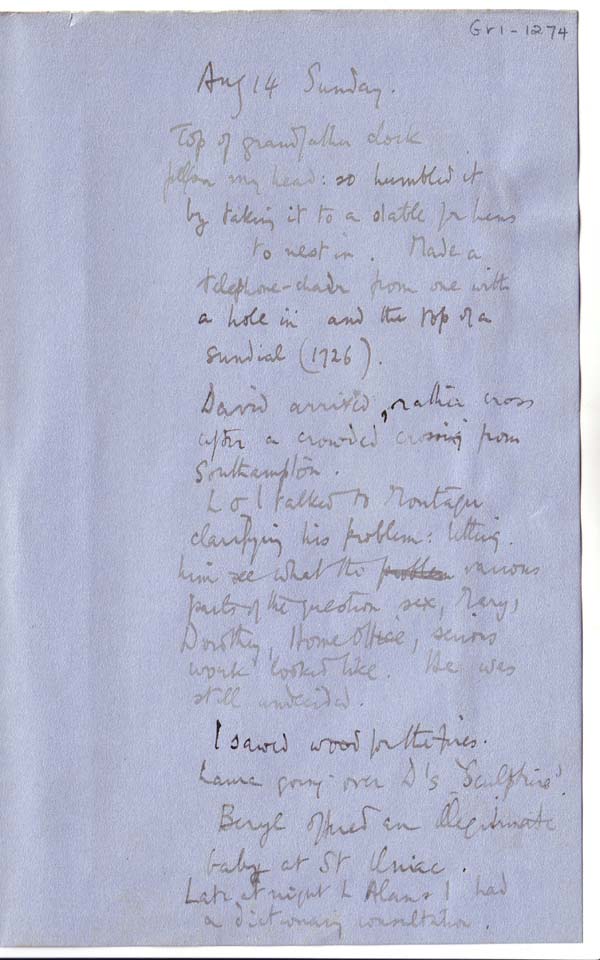 Gr1-1274
Aug 14 Sunday.
Top of grandfather clock
fell on my head: so humbled it
by taking it to a stable for hens
to nest in. Made a
telephone-chair from one with
a hole in and the top of a
sundial (1726).
David arrived, rather cross
after a crowded crossing from
Southampton.
L & I talked to Montagu
clarifying his problem: letting
him see what the problem various
parts of the question sex, Mary,
Dorothy, Home Office, serious
work looked like. He was
still undecided.
I sawed wood for the fires.
Laura going over D's 'Sculptures'.
Beryl offered an illegitimate
baby at St
Late at night L I had
a dictionary consultation.